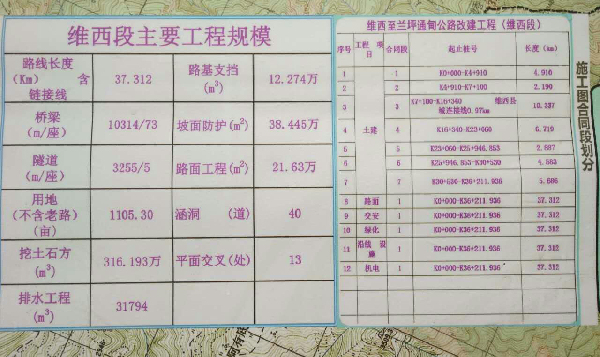 维西段主要工程规模
路线长度
(Km) 含
链接线
37.312
路基支挡
(m³)
12.274万
桥梁
(m/座)
10314/73
坡面防护(m²)
38.445万
隧道
(m/座)
3255/5
路面工程(m²)
21.63万
用地
(不含老路)
(亩)
1105.30
涵洞 (道)
40
挖土石方
(m³)
316.193万
平面交叉(处)
13
排水工程
(m³)
31794
维西至兰坪通甸公路改建工程(维西段)
序号
工程 项目
合同段
起止桩号
长度(km)
1
1
K0+000-K4+910
4.910
2
2
K4+910-K7+100
2.190
3
3
K7+100-K16+340 维西县
城连接线0.97km
10.237
4
土建
4
K16+340-K23+060
6.719
5
5
K23+060-K25+946.853
2.887
6
6
K25+946.853-K30+530
4.583
7
7
K30+530-K36+211.936
5.686
8
路面
1
K0+000-K36+211.936
37.312
9
交安
1
K0+000-K36+211.936
37.312
10
绿化
1
K0+000-K36+211.936
37.312
11
沿线 设施
1
K0+000-K36+211.936
37.312
12
机电
1
K0+000-K36+211.936
37.312
施工图合同段划分